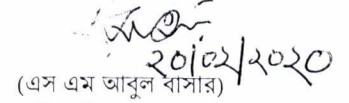 ২০/০২/২০২০
(এস এম আবুল বাসার)